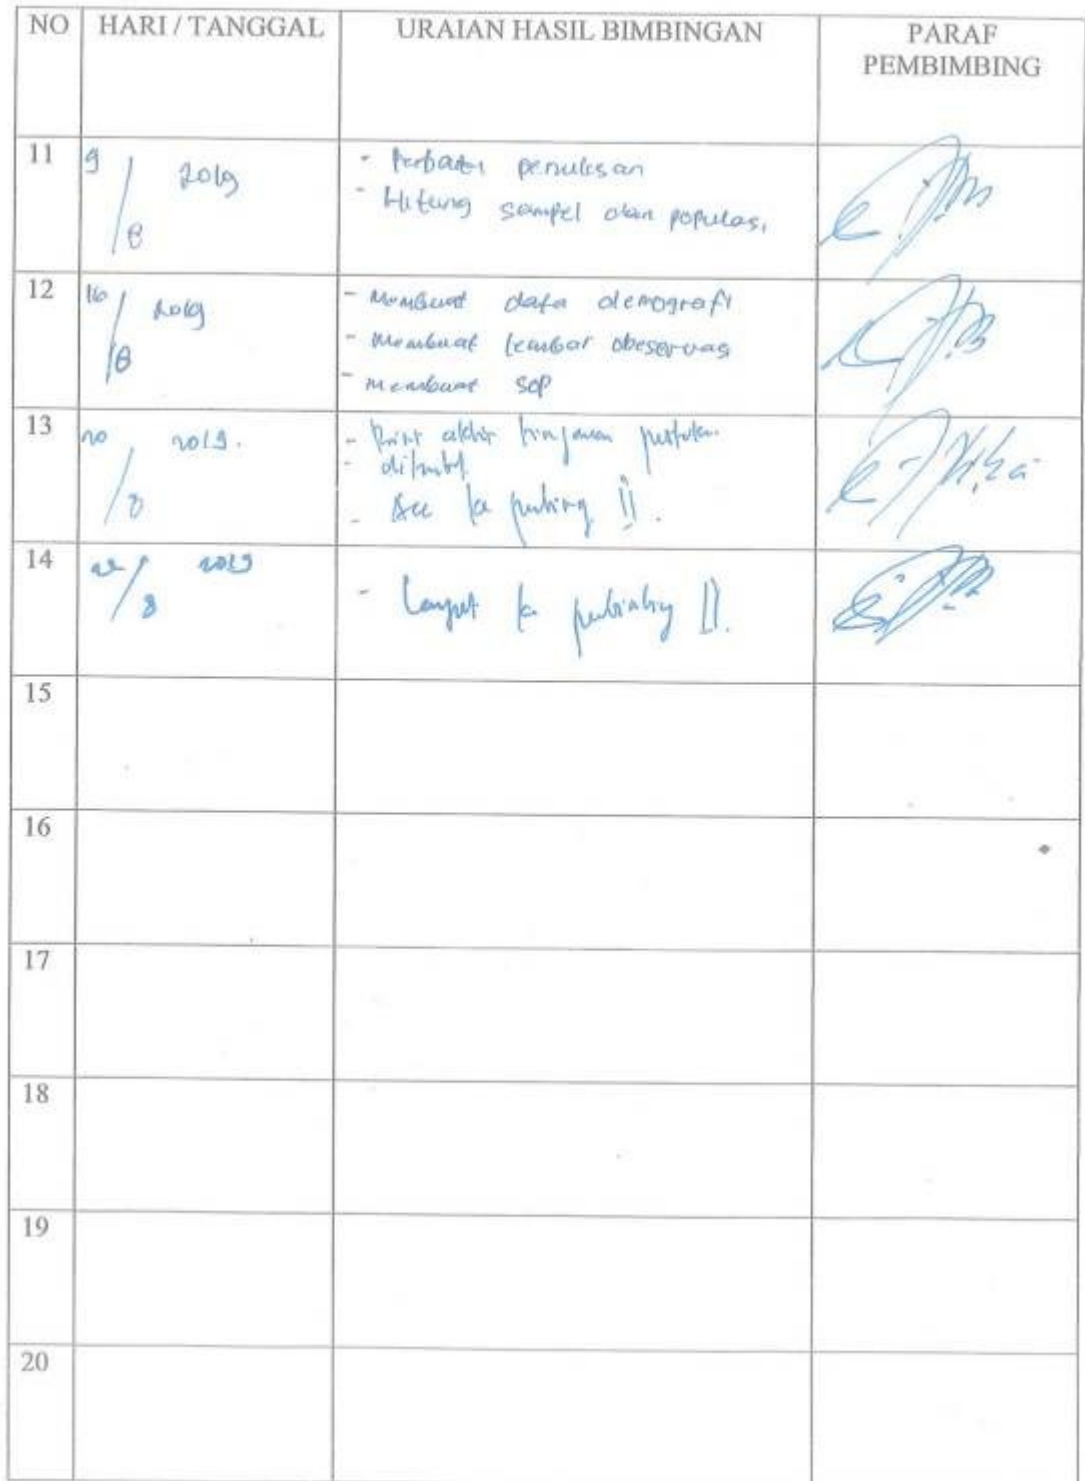 NO HARI / TANGGAL URAIAN HASIL BIMBINGAN PARAF
PEMBIMBING
11 9/8 2019 - Perbaiki penulisan
- Hitung sampel dan populasi
12 16/8 2019 - Membuat data demografi
- Membuat lembar obeservasi
- membuat SOP
13 20/8 2019. - Print akhir tinjauan pustaka
- ditambah
- Acc ke pembimbing II.
14 22/8 2019 - Lanjut ke pembimbing II.
15
16
17
18
19
20